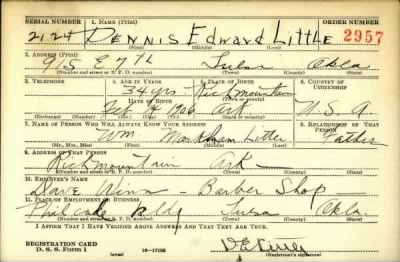 SERIAL NUMBER 1. NAME (Print) ORDER NUMBER
2124 DENNIS Edward Little 2957
(First) (Middle) (Last)
2. ADDRESS (Print)
915 E 7th Tulsa Okla
(Number and street or R. F. D. number) (Town) (County) (State)
3. TELEPHONE 4. AGE IN YEARS 5. PLACE OF BIRTH 6. COUNTRY OF CITIZENSHIP
34 yrs Richmountain
DATE OF BIRTH (Town or county)
Feb 1906 Ark. U. S. A.
(Exchange) (Number) (Mo.) (Day) (Yr.) (State or country)
7. NAME OF PERSON WHO WILL ALWAYS KNOW YOUR ADDRESS 8. RELATIONSHIP OF THAT PERSON
Wm Markham Little Father
(Mr., Mrs., Miss) (First) (Middle) (Last)
9. ADDRESS OF THAT PERSON
Richmountain Ark
(Number and street or R. F. D. number) (Town) (County) (State)
10. EMPLOYER'S NAME
Dave Winn - Barber Shop
11. PLACE OF EMPLOYMENT OR BUSINESS
Philcade Bldg Tulsa Okla.
(Number and street or R. F. D. number) (Town) (County) (State)
I AFFIRM THAT I HAVE VERIFIED ABOVE ANSWERS AND THAT THEY ARE TRUE.
REGISTRATION CARD
D. S. S. Form 1 16—17105 (Registrant's signature)